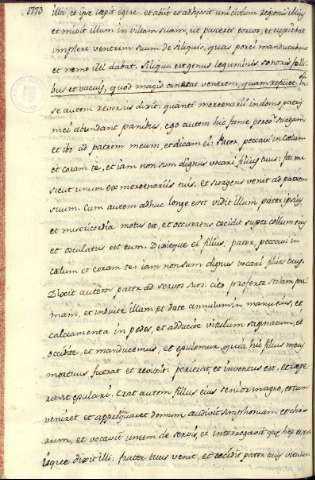 illa: et ipse cepit egere. et abiit et adhesit uni civium regionis illius
et misit illum in villam suam, ut pasceret porcos, et cupiebat
implere ventrem suum de siliquis, quas porci manducabant
et nemo illi dabat. Siliqua est genus leguminis sonoris folli
bus et vacuis, quod magis onerat ventrem, quam reficit. In
se autem reversus dixit: quanti mercenarii in domo patris
mei abundant panibus, ego autem hic fame pereo. surgam
et ibo ad patrem meum, et dicam ei: Pater peccavi in cœlum
et coram te, et iam non sum dignus vocari filius tuus: fac me
sicut unum ex mercenariis tuis. et surgens venit ad patrem
suum. Cum autem adhuc longe esset vidit illum pater ipsius
et misericordia motus est, et occurrens cecidit supra collum eius
et osculatus est eum. Dixitque ei filius. pater, peccavi in
cælum et coram te: iam non sum dignus vocari filius tuus.
Dixit autem pater ad servos suos: cito proferte stolam pri
mam, et induite illum, et date annulum in manu eius, et
calciamenta in pedes, et adducite vitulum saginatum, et
occidite, et manducemus, et epulemur, quia hic filius meus
mortuus fuerat et revixit: perierat, et inventus est. et cepe
runt epulari. Erat autem filius eius senior in agro, et cum
veniret et appropinquaret domum audivit symphoniam et cho
rum, et vocavit unum de servis, et interrogavit que hec essent
isque dixit illi: frater tuus venit, et occidit pater tuus vitulum